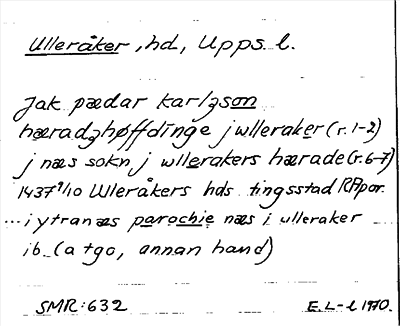 Ulleråker, hd, Upps. l.
Jak pædar karlzson
hæradzhøffdinge j wlleraker (r. 1-2)
j næs sokn j wllerakers hærade (r. 6-7)
1437 9/10 Ulleråkers hds tingsstad RApar.
... i ytranæs parochie næs i ulleraker
ib. (a tgo, annan hand)
SMR: 632
E. L-l 1970.